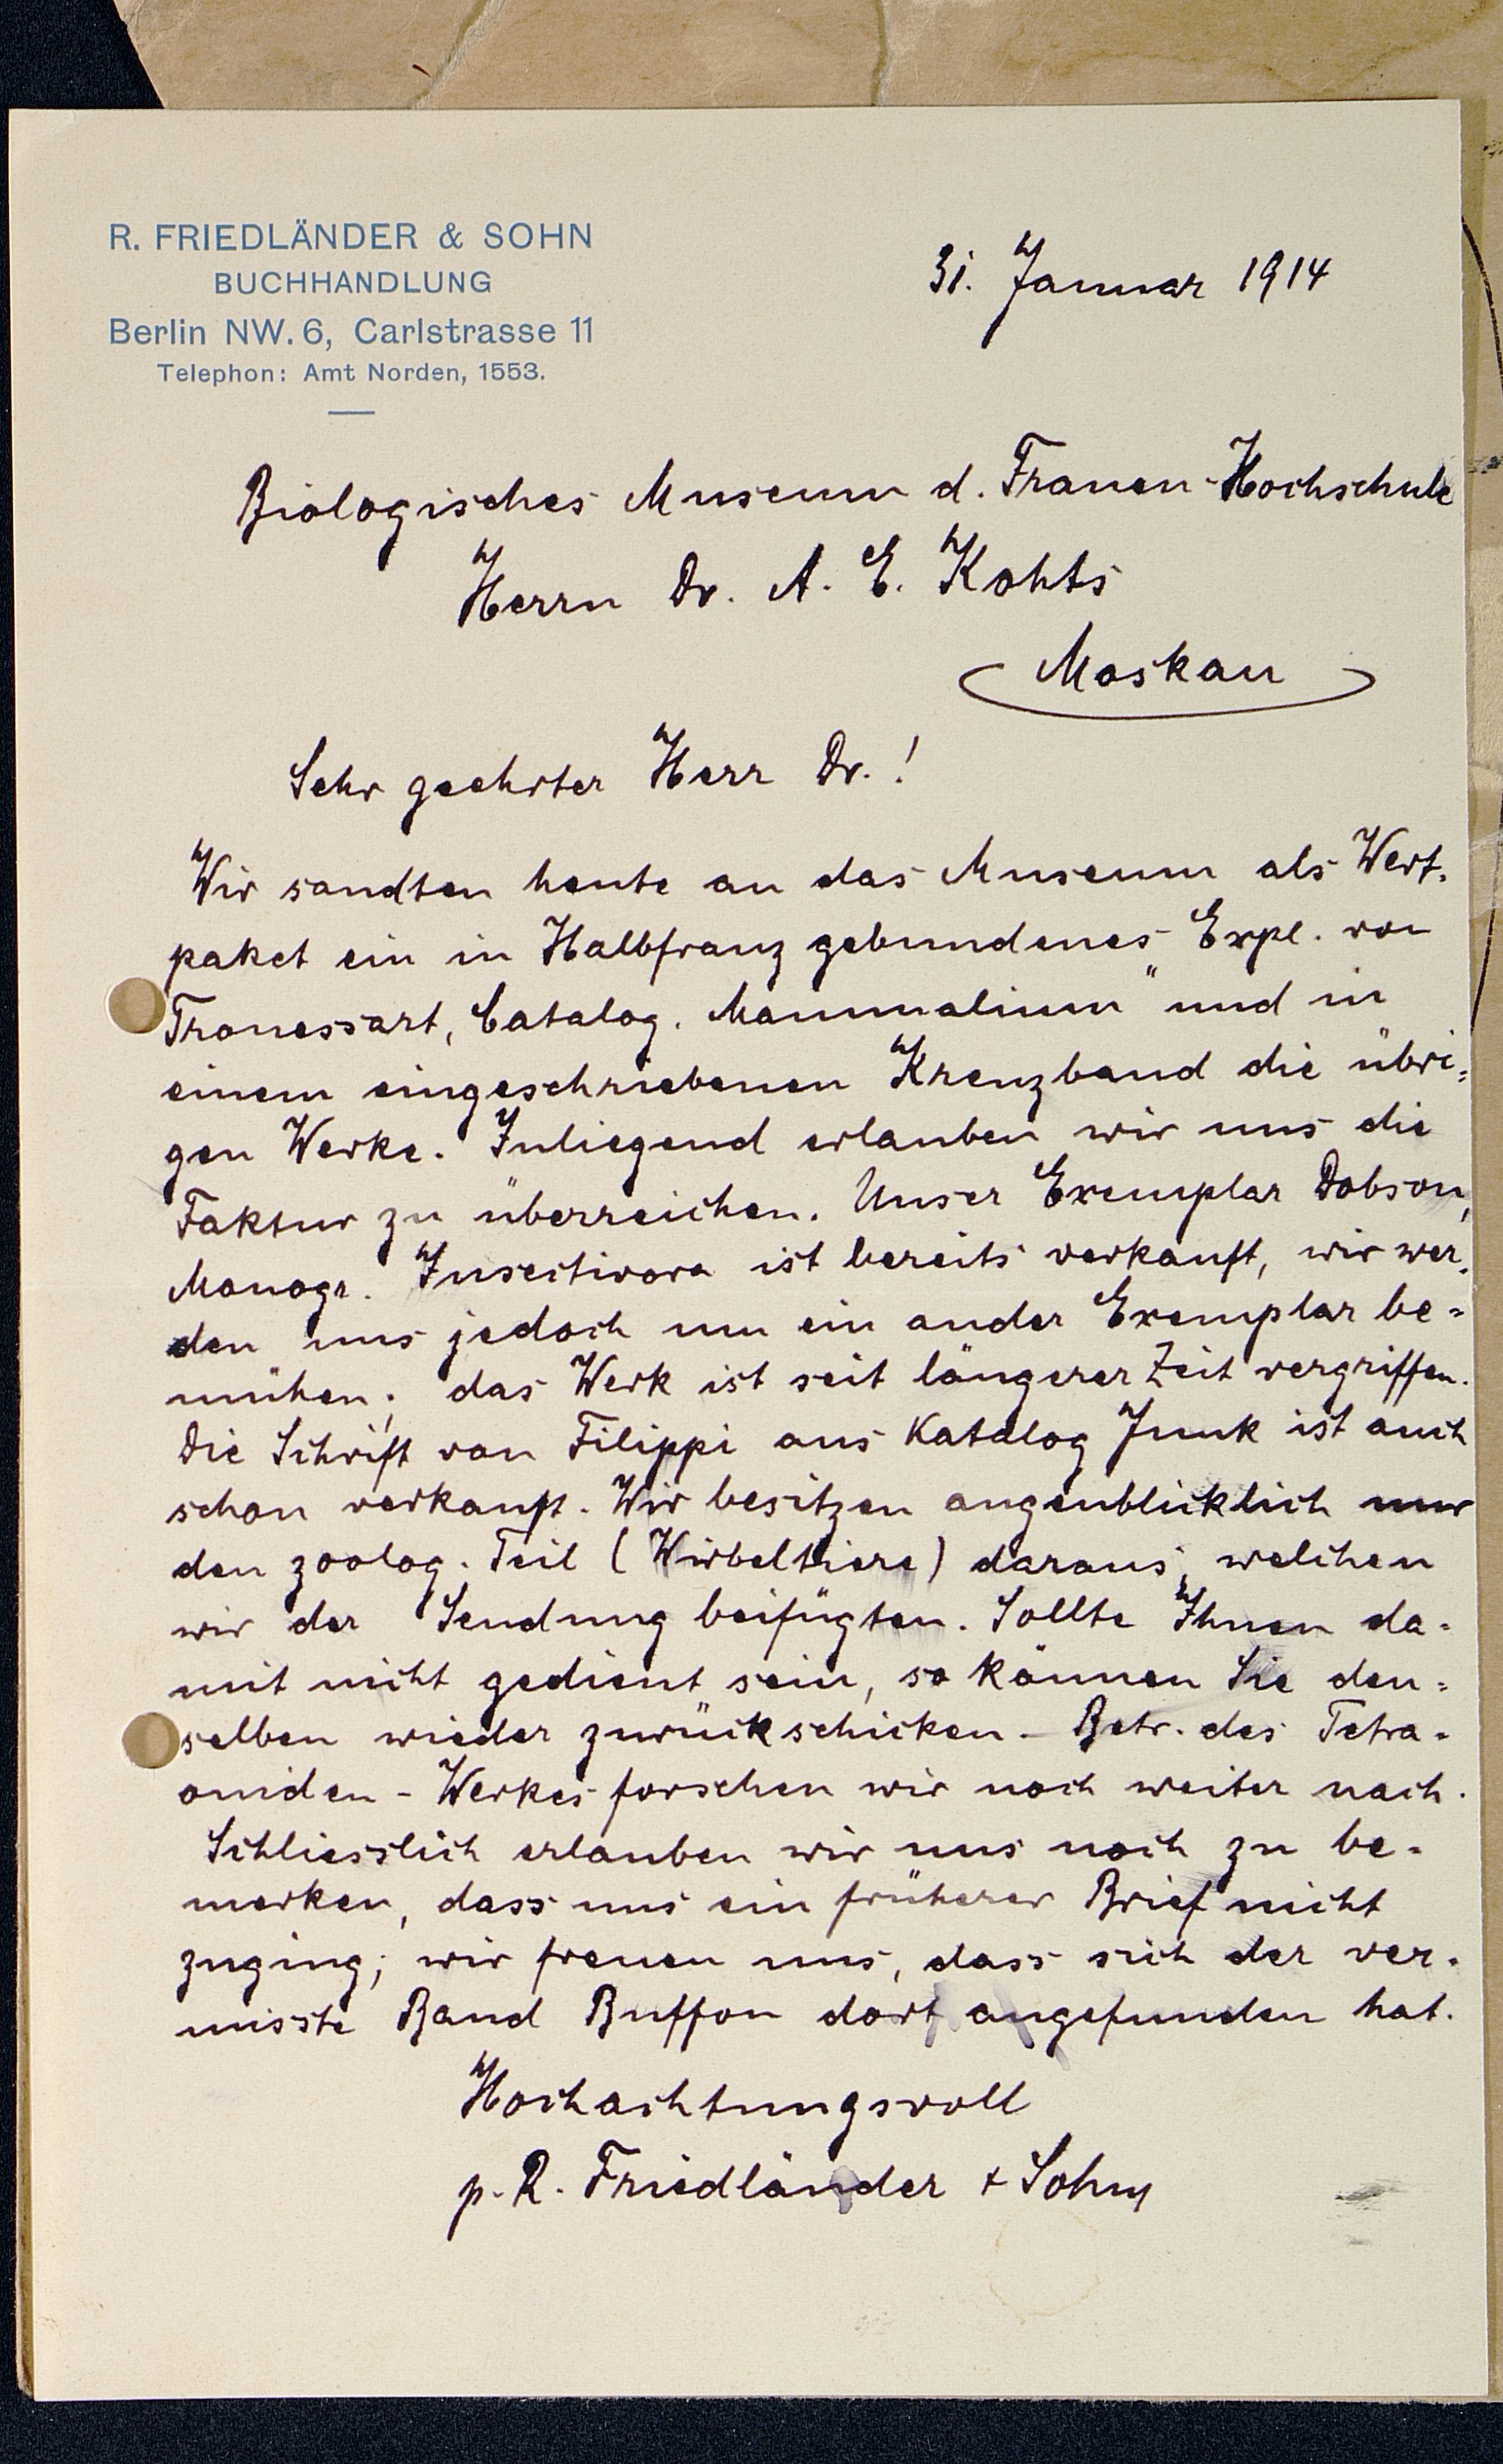 R. FRIEDLÄNDER & SOHN
BUCHHANDLUNG
Berlin NW. 6, Carlstrasse 11
Telephon: Amt Norden, 1553.
31. Januar 1914
Biologisches Museum d. Frauen-Hochschule
Herrn Dr. A. E. Kohts
Moskau
Sehr geehrter Herr Dr.!
Wir sandten heute an das Museum als Wert-
paket ein in Halbfranz gebundenes Expl. von
Trouessart, Catalog. Mammalium" und in
einem eingeschriebenen Kreuzband die übri=
gen Werke. Inliegend erlauben wir uns die
Faktur zu überreichen. Unser Exemplar Dobson,
Monogr. Insectivora ist bereits verkauft, wir wer-
den uns jedoch um ein ander Exemplar be=
mühen; das Werk ist seit längerer Zeit vergriffen.
Die Schrift von Filippi aus Katalog Junk ist auch
schon verkauft. Wir besitzen augenblicklich nur
den zoolog. Teil (Wirbeltiere) daraus, welchen
wir der Sendung beifügten. Sollte Ihnen da=
mit nicht gedient sein, so können Sie den=
selben wieder zurückschicken. - Betr. des Tetra=
oniden-Werkes forschen wir noch weiter nach.
Schliesslich erlauben wir uns noch zu be=
merken, dass uns ein früherer Brief nicht
zuging; wir freuen uns, dass sich der ver-
misste Band Buffon dort angefunden hat.
Hochachtungsvoll
p. R. Friedländer & Sohn